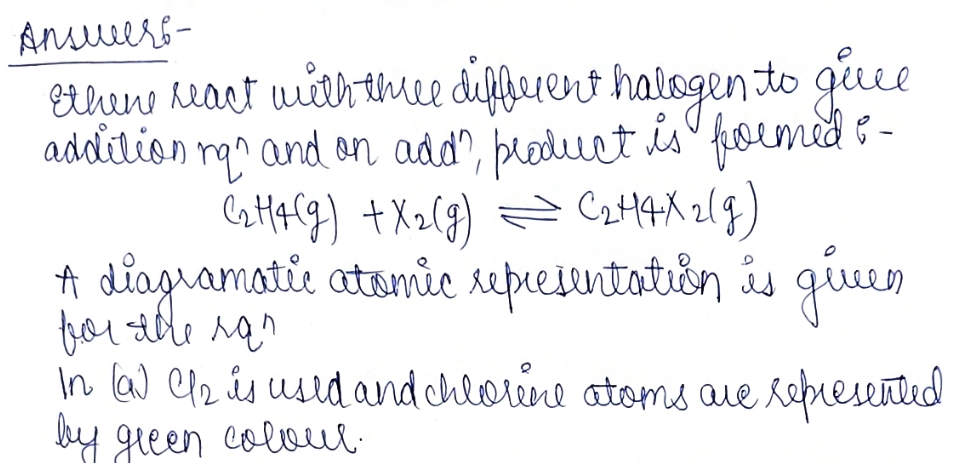 Answer:-
Ethene react with three different halogen to give
addition rqn and on addn, product is formed :-
C2H4(g) + X2(g) ⇌ C2H4X2(g)
A diagramatic atomic representation is given
for the rqn
In (a) Cl2 is used and chlorine atoms are represented
by green colour.